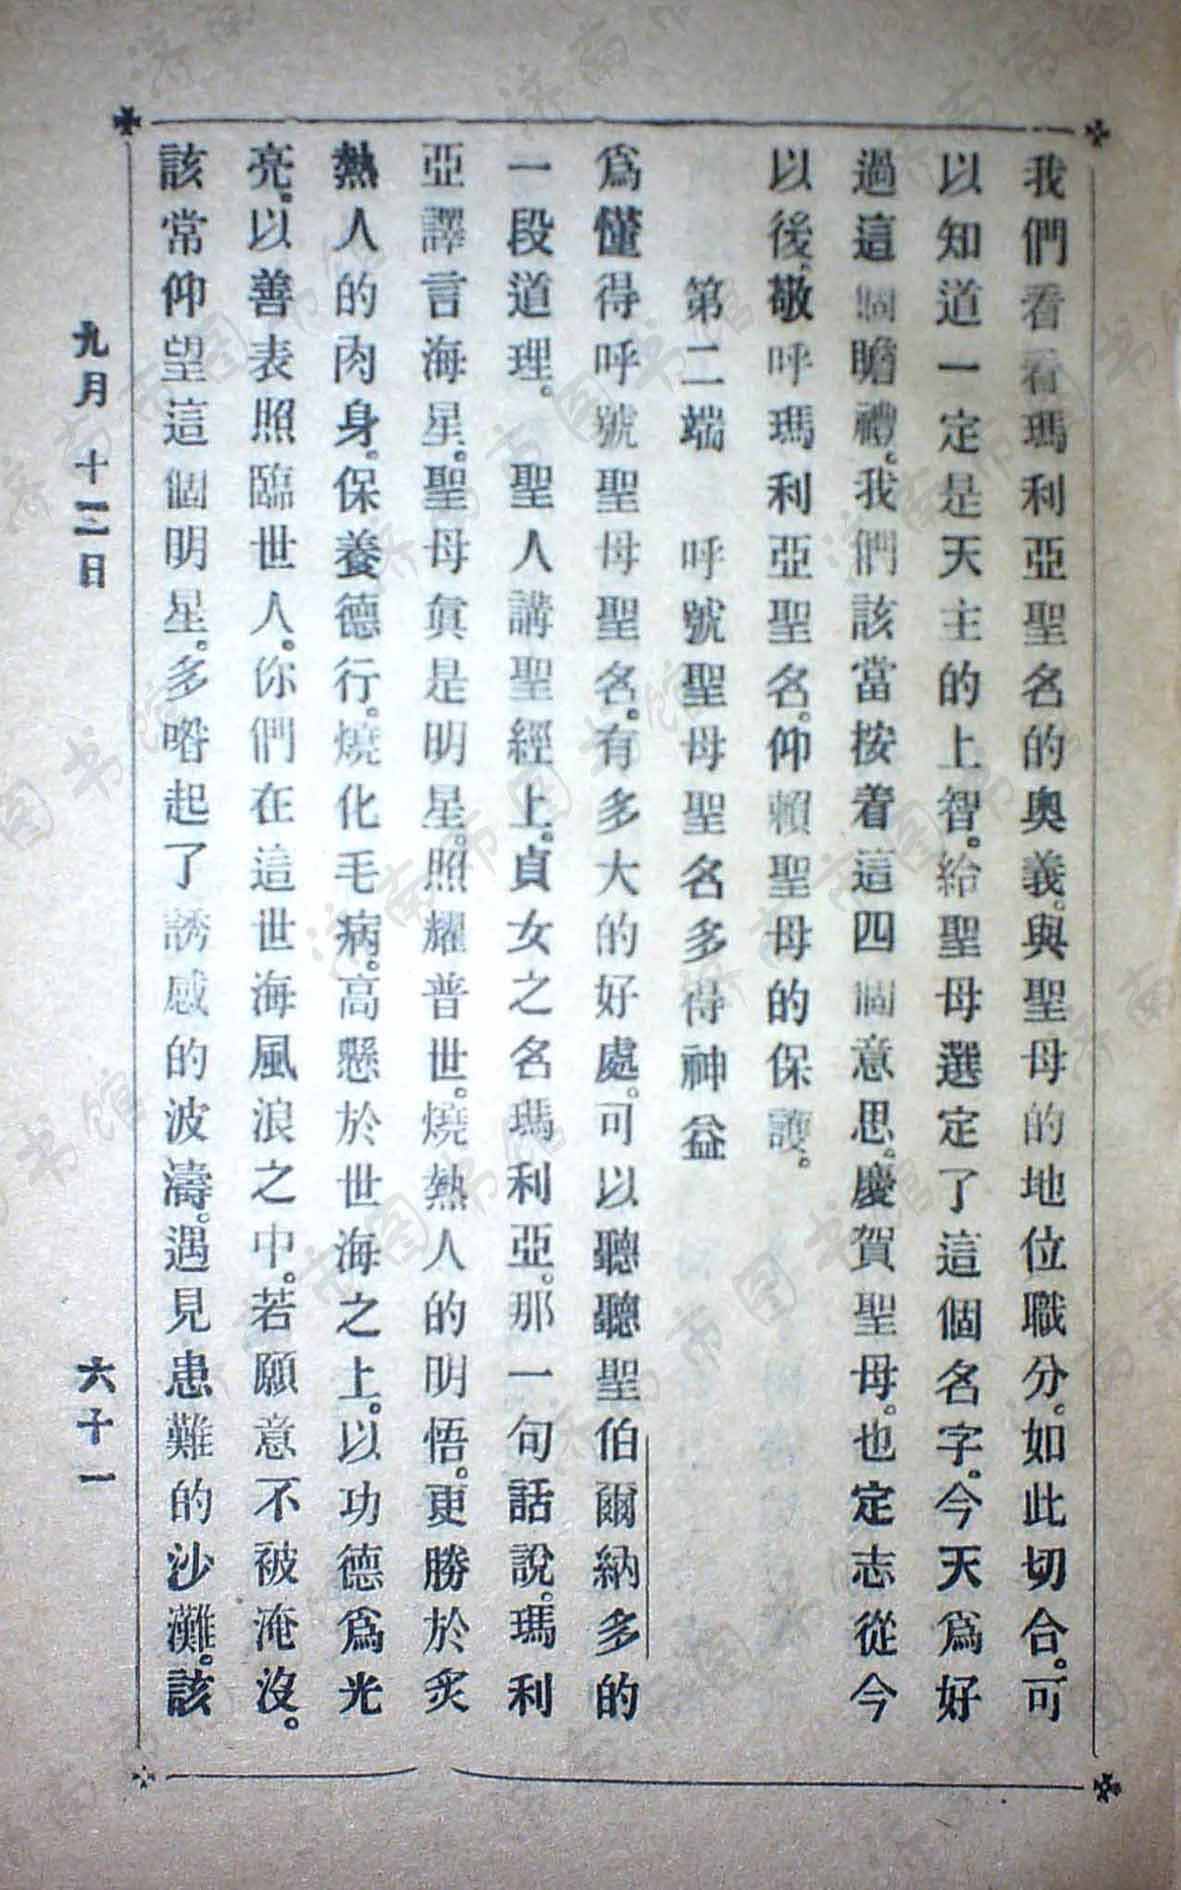 我們看看瑪利亞聖名的奧義。與聖母的地位職分。如此切合。可
以知道一定是天主的上智。給聖母選定了這個名字。今天爲好
過這個瞻禮。我們該當按着這四個意思。慶賀聖母。也定志從今
以後。敬呼瑪利亞聖名。仰賴聖母的保護。
第二端 呼號聖母聖名多得神益
爲懂得呼號聖母聖名。有多大的好處。可以聽聽聖伯爾納多的
一段道理。聖人講聖經上。貞女之名瑪利亞。那一句話說。瑪利
亞譯言海星。聖母眞是明星。照耀普世。燒熱人的明悟。更勝於炙
熱人的肉身。保養德行。燒化毛病。高懸於世海之上。以功德爲光
亮。以善表照臨世人。你們在這世海風浪之中。若願意不被淹沒。
該常仰望這個明星。多喒起了誘感的波濤。遇見患難的沙灘。該
九月十二日 六十一
济南市图书馆